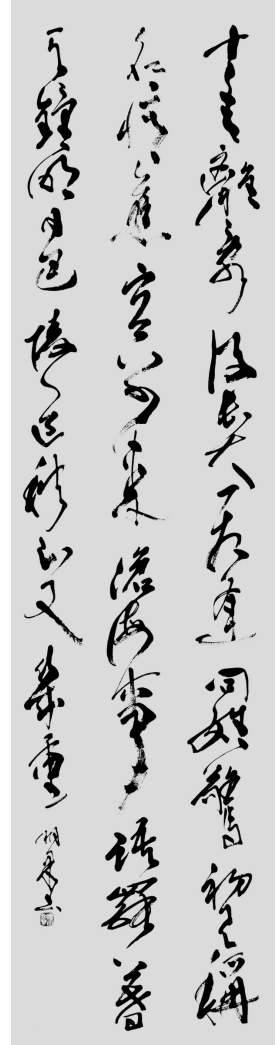 十年離亂後長大一相逢問姓驚初見稱
名憶舊容別來滄海事語罷暮
天鐘明日巴陵道秋山又幾重